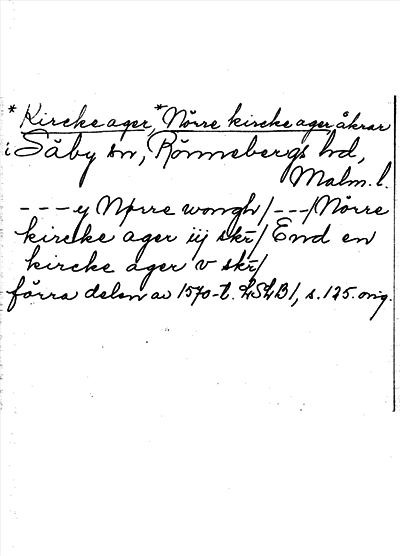 *Kircke ager, *Nörre kircke ager, åkrar
i Säby sn, Rönnebergs hd,
Malm. l.
- - - y Nørre wongh / - - - / Nörre
kircke ager iij skr̄ / End en
kircke ager v skr̄ /
förra delen av 1570-t. LSLB 1, s. 125. orig.